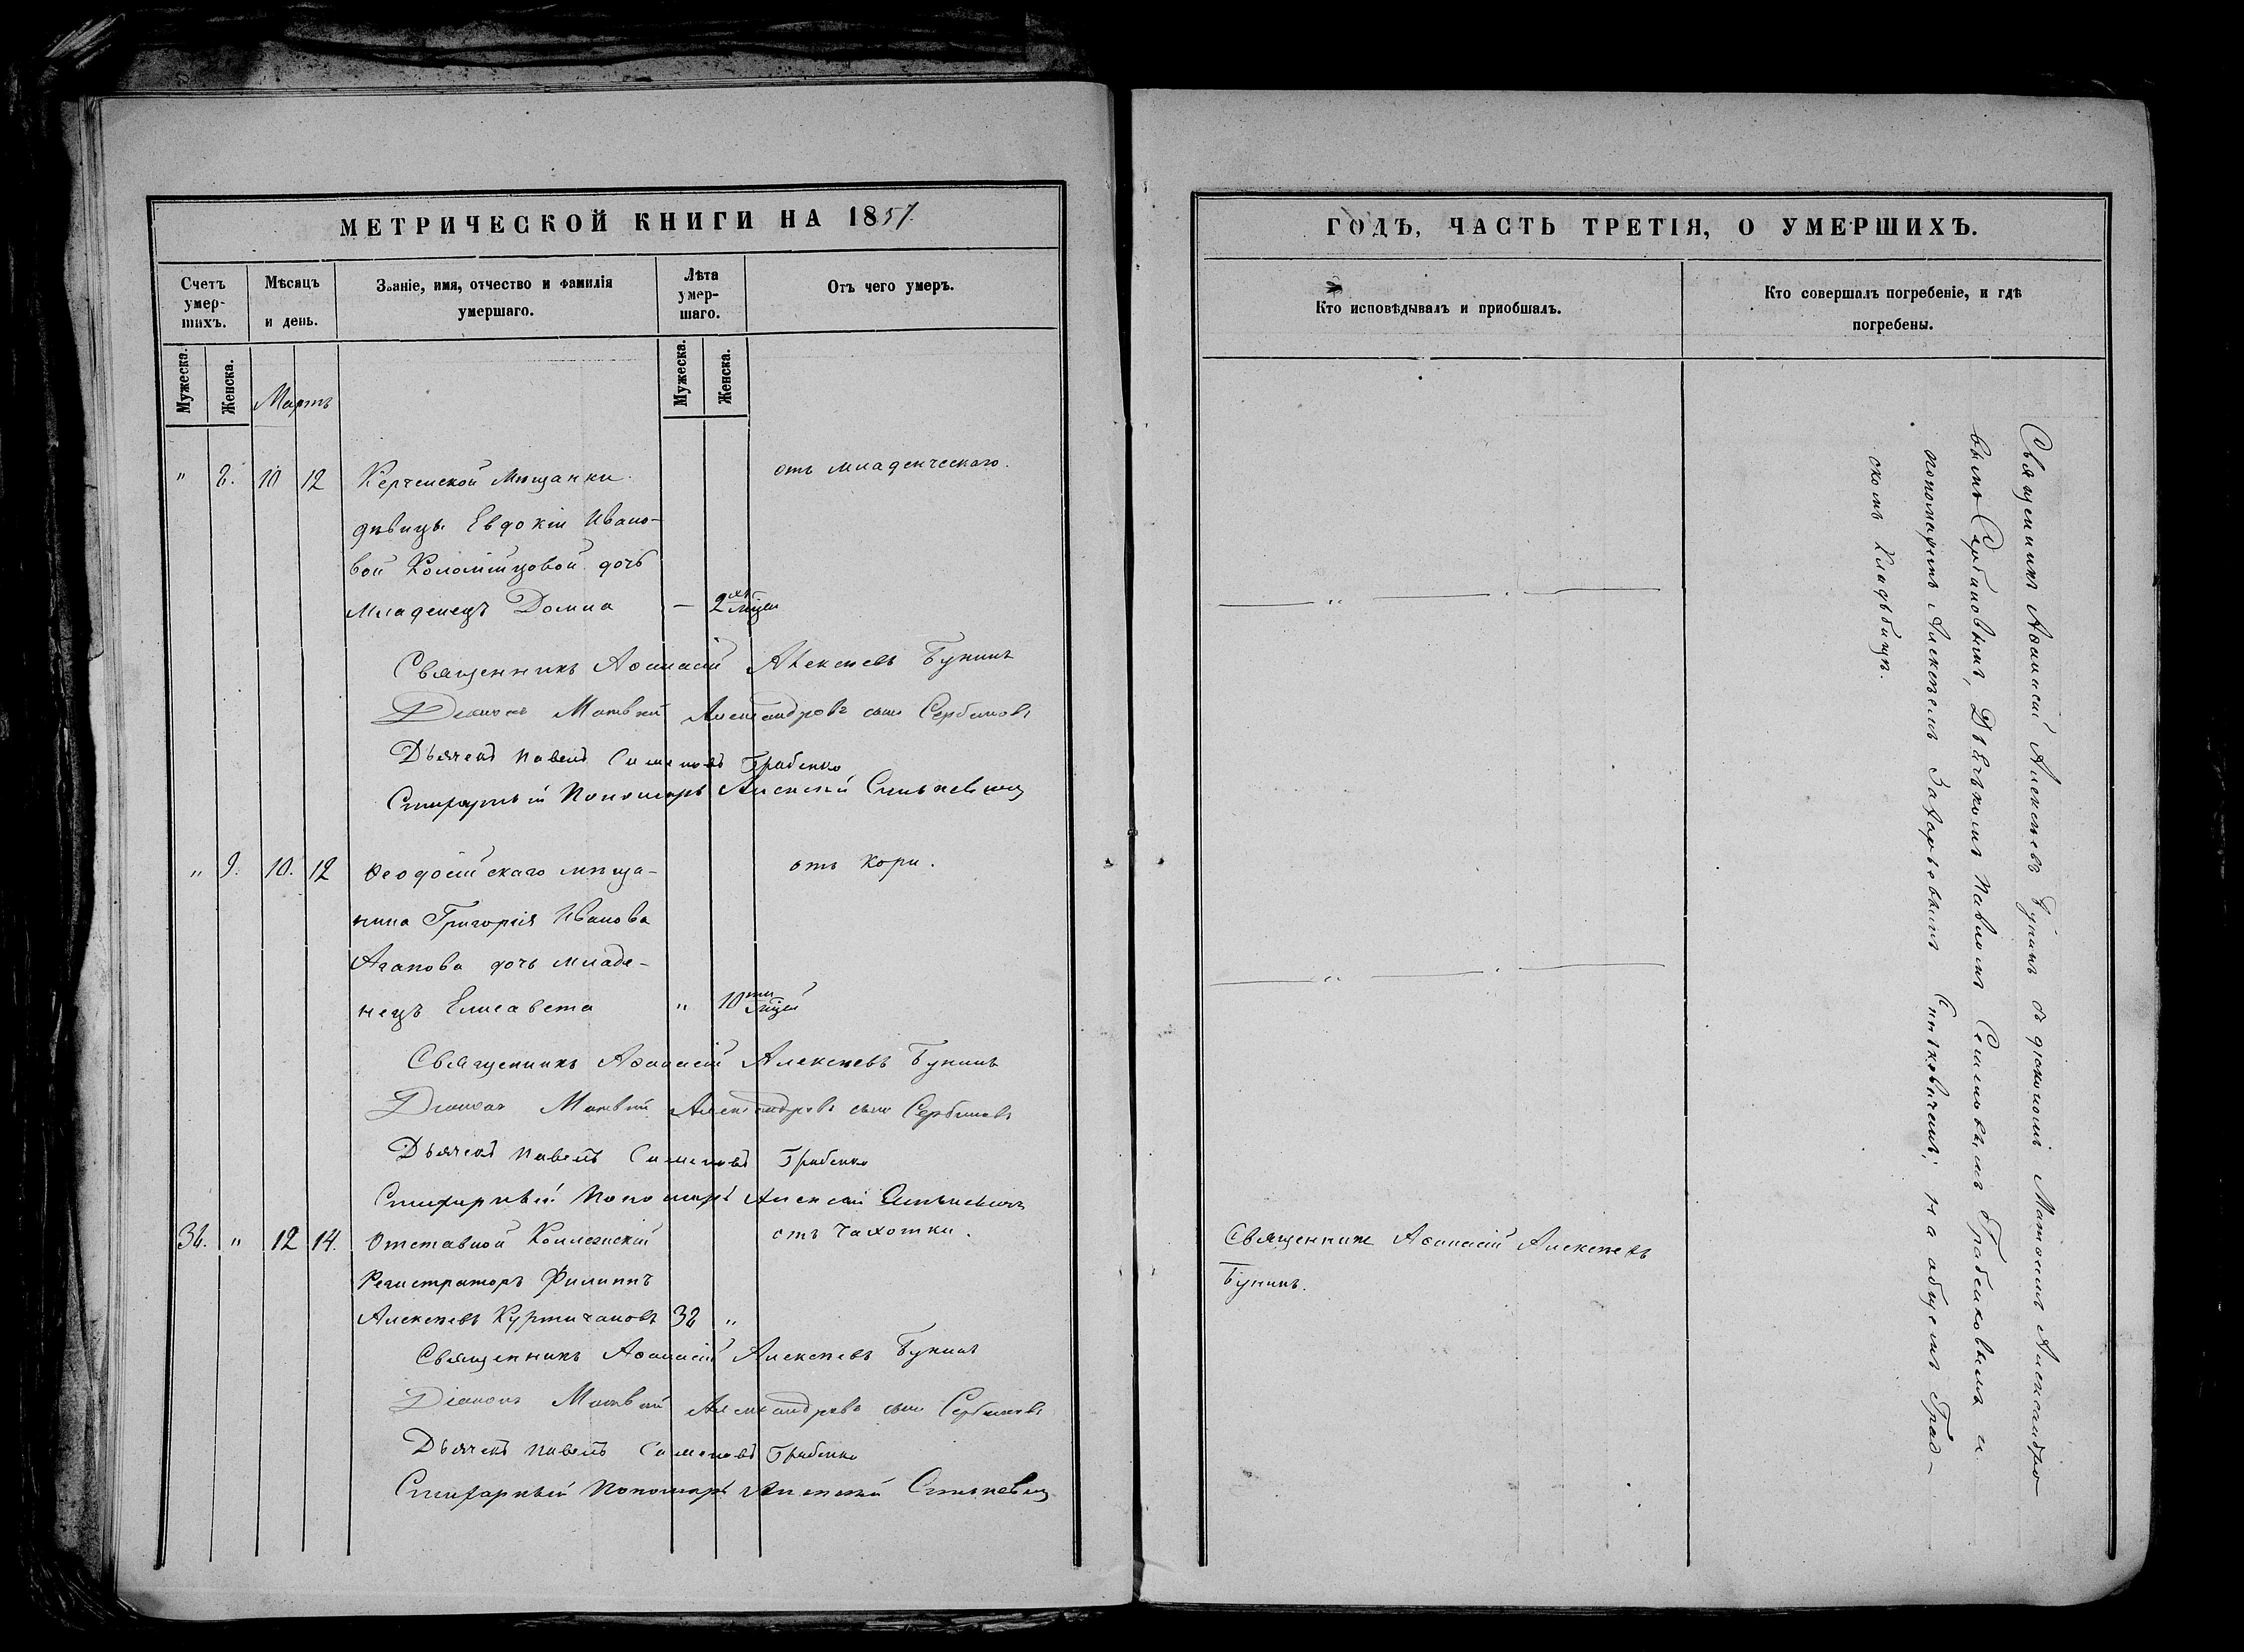 МЕТРИЧЕСКОЙ КНИГИ НА 1857.
Счетъ умер-шихъ.
Мѣсяцъ и день.
Званіе, имя, отчество и фамилія умершаго.
Лѣта умер-шаго.
Отъ чего умеръ.
Мужеска.
Женска.
Мартъ
Мужеска.
Женска.
" 8. 10 12 Керченской Мѣщанки отъ младенческаго.
дѣвицы Евдокіи Ивано-
вой Коломійцовой дочь
Младенецъ Домна — 2хъ мцеи
Священникъ Аѳанасій Алексѣевъ Бунинъ
Діаконъ Матвѣй Александровъ сынъ Сербиновъ
Дьячекъ Павелъ Семеновъ Грабенко
Стихарный Пономарь Алексѣй Синькевичъ
" 9. 10. 12 Ѳеодосійскаго мѣща- отъ кори.
нина Григорія Иванова
Агапова дочь младе-
нецъ Елисавета " 10ти мцей
Священникъ Аѳанасій Алексѣевъ Бунинъ
Діаконъ Матвѣй Александровъ сынъ Сербиновъ
Дьячекъ Павелъ Семеновъ Грабенко
Стихарный Пономарь Алексѣй Синькевичъ
36. " 12 14. Отставной Коллежскій отъ Чахотки.
Регистраторъ Филиппъ
Алексѣевъ Куртичановъ 32 "
Священникъ Аѳанасій Алексѣевъ Бунинъ
Діаконъ Матвѣй Александровъ сынъ Сербиновъ
Дьячекъ Павелъ Семеновъ Грабенко
Стихарный Пономарь Алексѣй Синькевичъ
ГОДЪ, ЧАСТЬ ТРЕТІЯ, О УМЕРШИХЪ.
Кто исповѣдывалъ и пріобщалъ.
Кто совершалъ погребеніе, и гдѣ погребены.
— " — . —
— " — . —
Священникъ Аѳанасій Алексѣевъ
Бунинъ.
Священникъ Аѳанасій Алексѣевъ Бунинъ съ діакономъ Матвѣемъ Александро-
вымъ Сербиновымъ, Дьячкомъ Павломъ Семеновымъ Грабенковымъ и
пономаремъ Алексѣемъ Захарьевымъ Синьковичемъ; на общемъ Град-
скомъ Кладбищѣ.